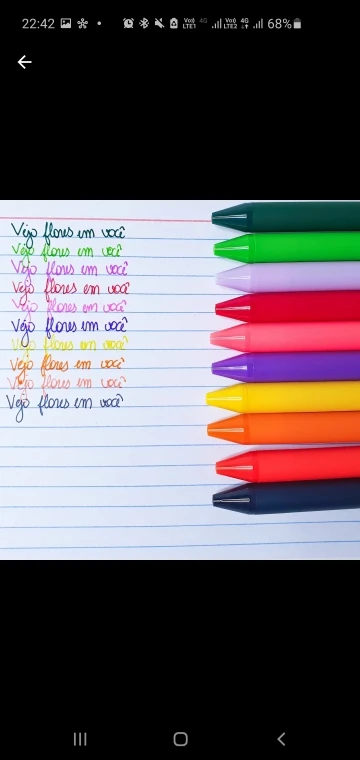 22:42 Vo)) LTE1 4G Vo)) LTE2 4G 68%
Vejo flores em você
Vejo flores em você
Vejo flores em você
Vejo flores em você
Vejo flores em você
Vejo flores em você
Vejo flores em você
Vejo flores em você
Vejo flores em você
Vejo flores em você